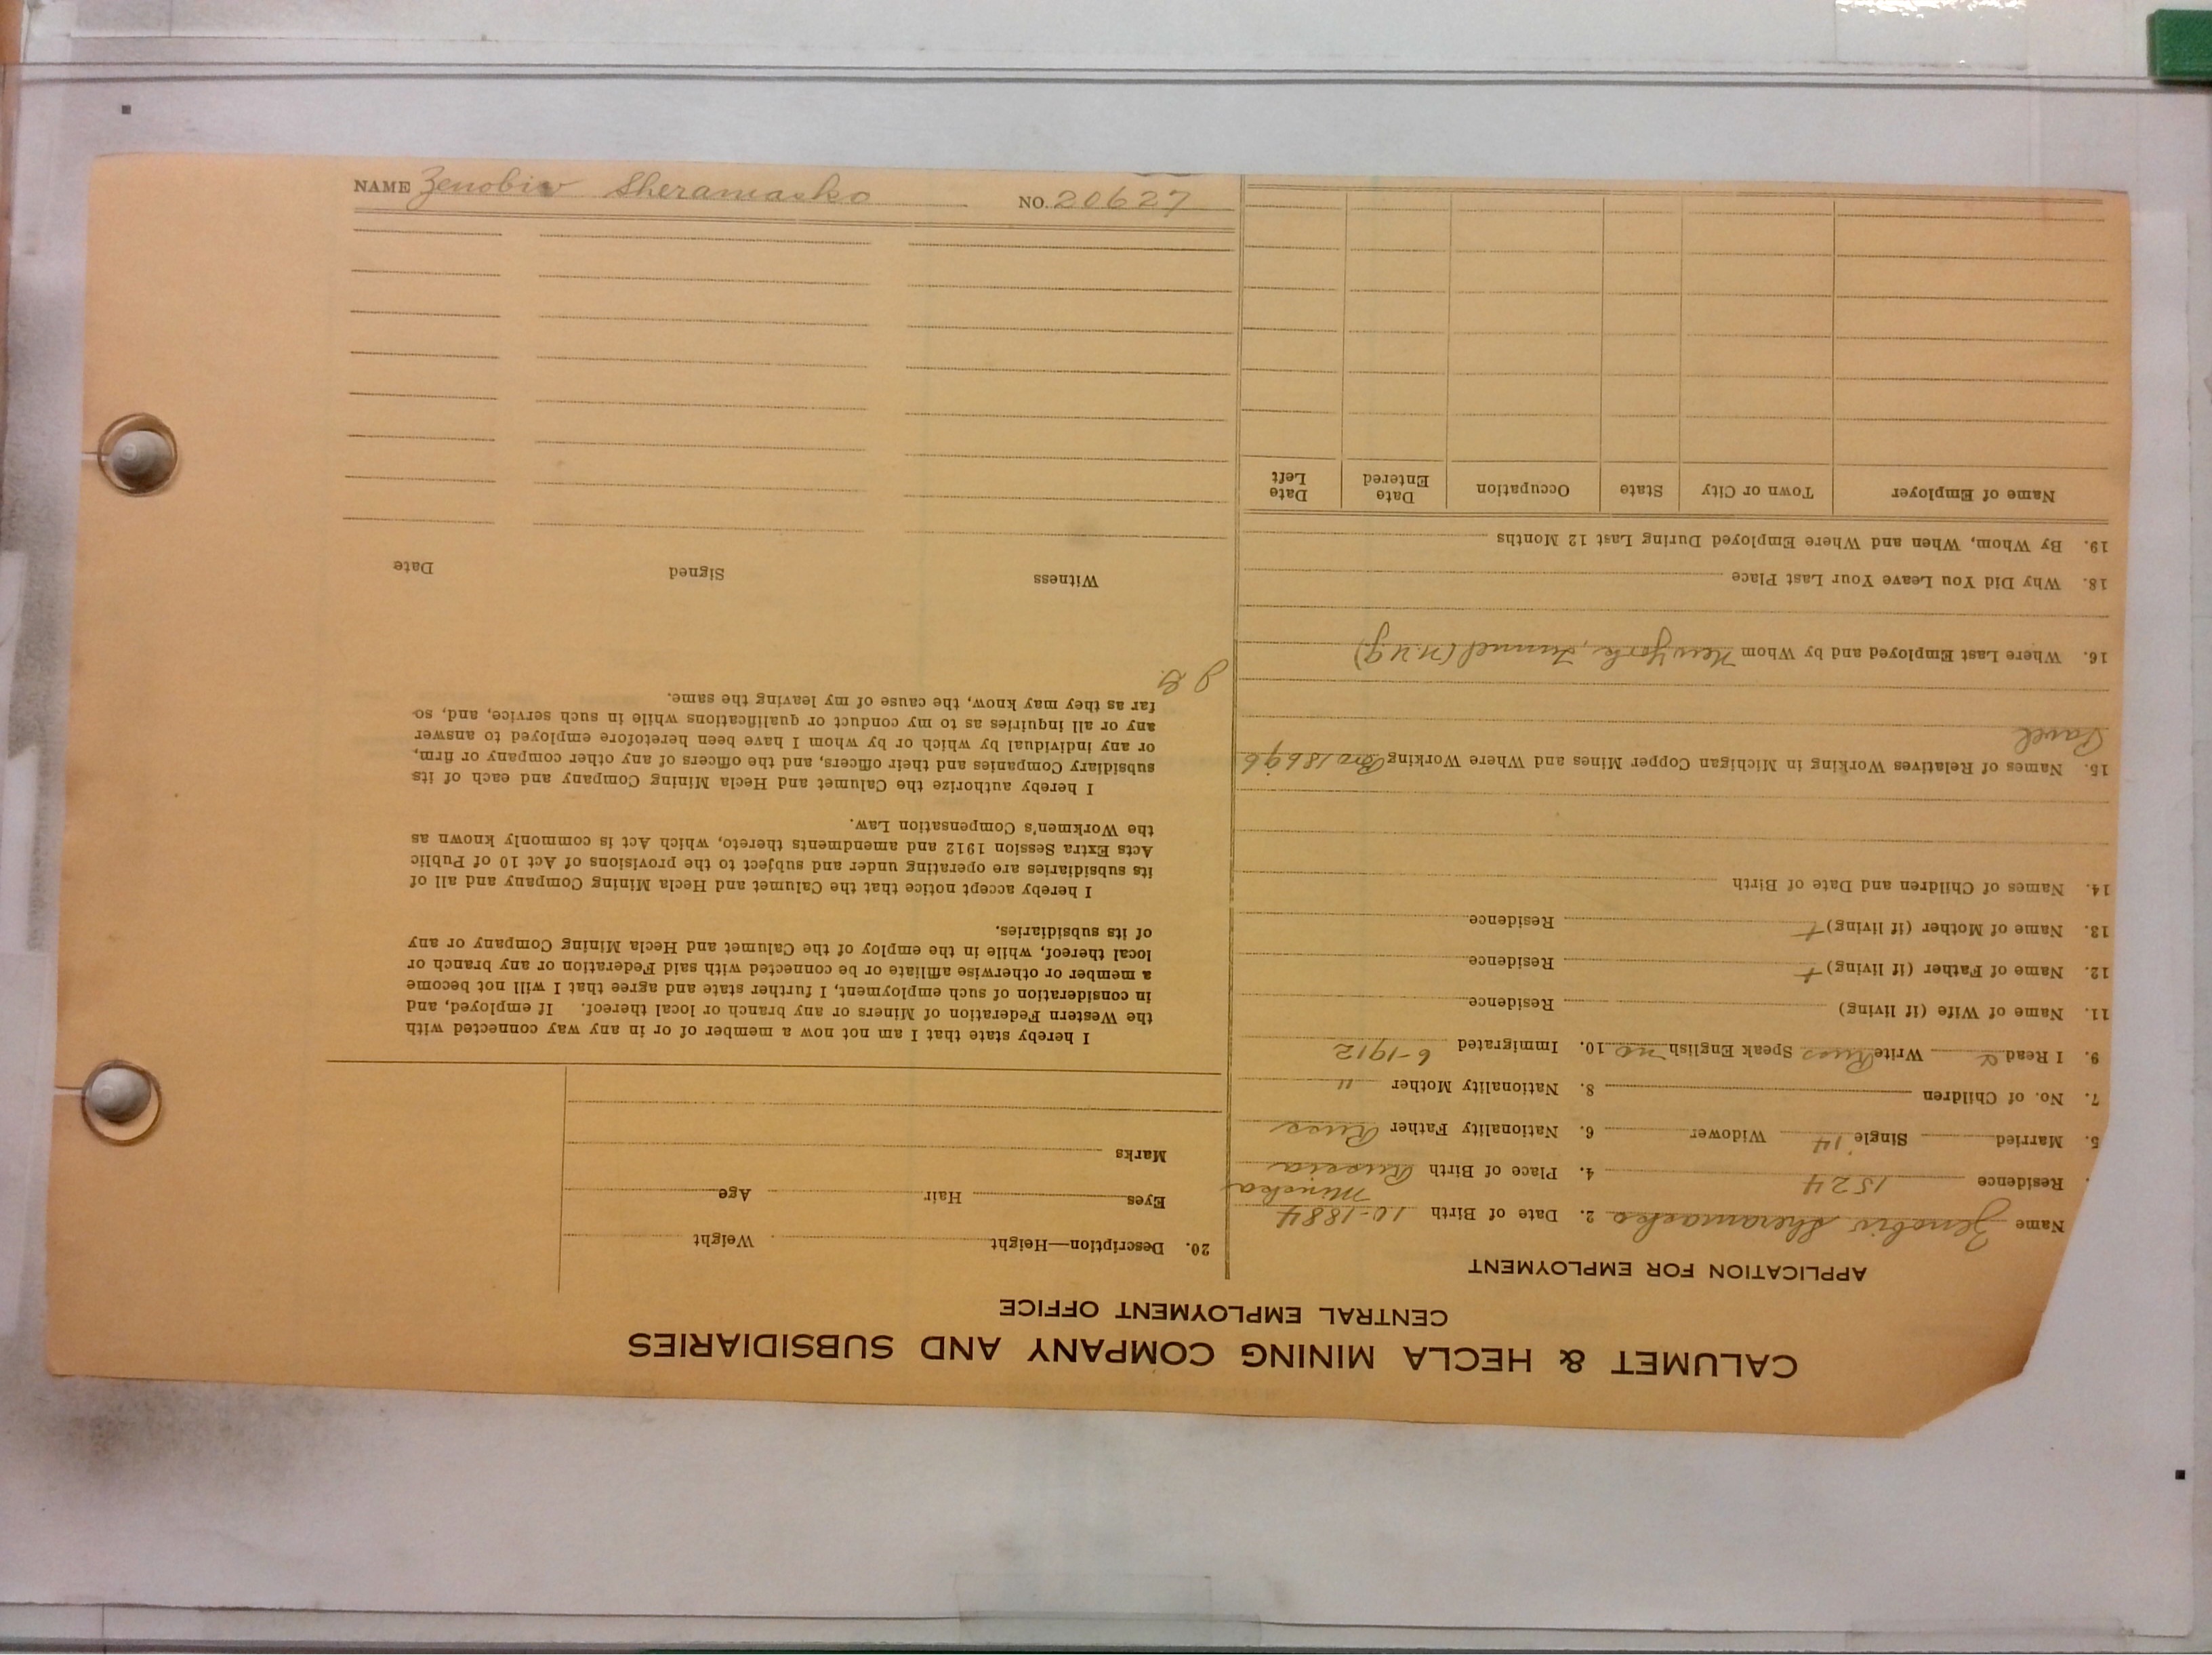 NAME Zenobiw Sheramasko NO. 20627
CALUMET & HECLA MINING COMPANY AND SUBSIDIARIES
CENTRAL EMPLOYMENT OFFICE
APPLICATION FOR EMPLOYMENT
Name Zenobiw Sheramasko 2. Date of Birth 10-1884
Residence 1524 4. Place of Birth Minska Russia
5. Married Single 14 Widower 6. Nationality Father Russ
7. No. of Children 8. Nationality Mother "
9. I Read & Write Russ Speak English no 10. Immigrated 6-1912
11. Name of Wife (if living) Residence
12. Name of Father (if living) + Residence
13. Name of Mother (if living) + Residence
14. Names of Children and Date of Birth
15. Names of Relatives Working in Michigan Copper Mines and Where Working Bro 18696
Pavel
16. Where Last Employed and by Whom New York, Tunnel (n.u.g)
18. Why Did You Leave Your Last Place
19. By Whom, When and Where Employed During Last 12 Months
Name of Employer Town or City State Occupation Date Entered Date Left
20. Description—Height Weight
Eyes Hair Age
Marks
I hereby state that I am not now a member of or in any way connected with
the Western Federation of Miners or any branch or local thereof. If employed, and
in consideration of such employment, I further state and agree that I will not become
a member or otherwise affiliate or be connected with said Federation or any branch or
local thereof, while in the employ of the Calumet and Hecla Mining Company or any
of its subsidiaries.
I hereby accept notice that the Calumet and Hecla Mining Company and all of
its subsidiaries are operating under and subject to the provisions of Act 10 of Public
Acts Extra Session 1912 and amendments thereto, which Act is commonly known as
the Workmen's Compensation Law.
I hereby authorize the Calumet and Hecla Mining Company and each of its
subsidiary Companies and their officers, and the officers of any other company or firm,
or any individual by which or by whom I have been heretofore employed to answer
any or all inquiries as to my conduct or qualifications while in such service, and, so
far as they may know, the cause of my leaving the same.
Witness Signed Date